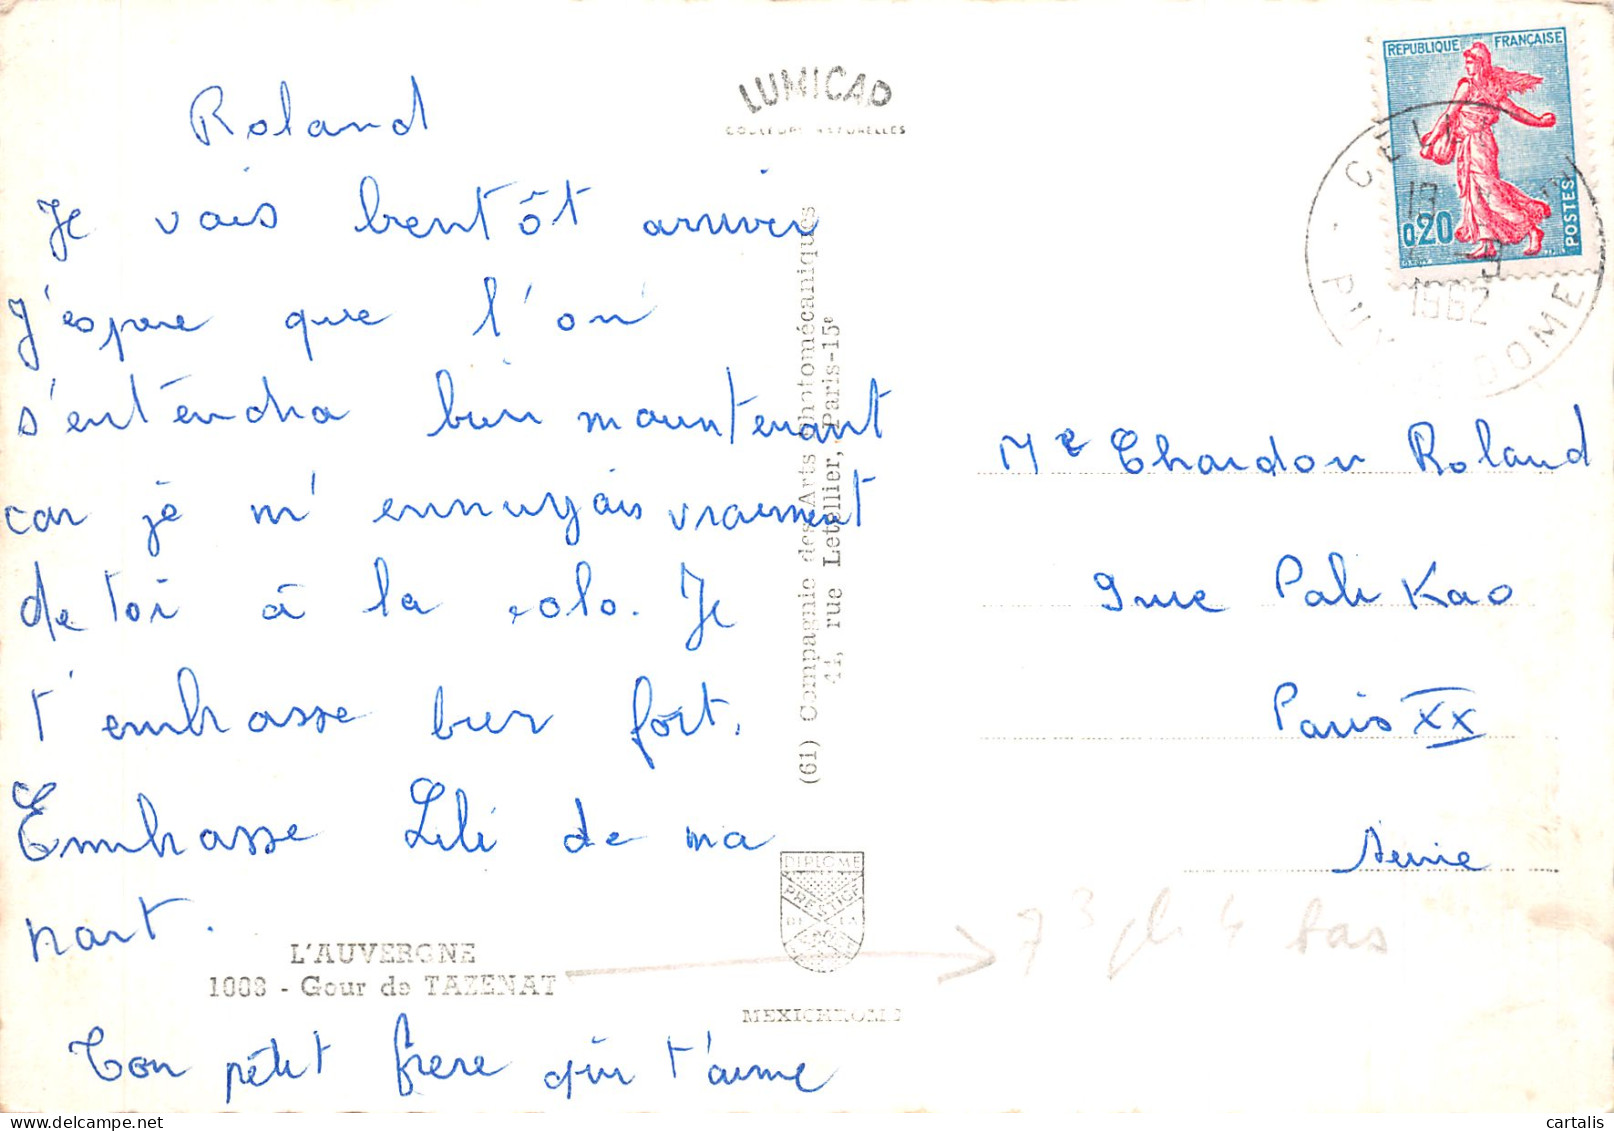 Roland
Je vais bientôt arriver
J'espere que l'on
s'entendra bien maintenant
car je m'ennuyais vraiment
de toi à la colo. Je
t'embrasse bien fort.
Embrasse Lili de ma
part.
L'AUVERGNE
1008 - Gour de TAZENAT
Ton petit frère qui t'aime
LUMICAP
COULEURS NATURELLES
(61) Compagnie des Arts Photomécaniques
44, rue Letellier, Paris-15e
DIPLOME
PRESTIGE
MEXICHROME
REPUBLIQUE FRANÇAISE
0,20
POSTES
1962
PUY DE DOME
Mr Chardon Roland
9 rue Pali Kao
Paris XX
Seine